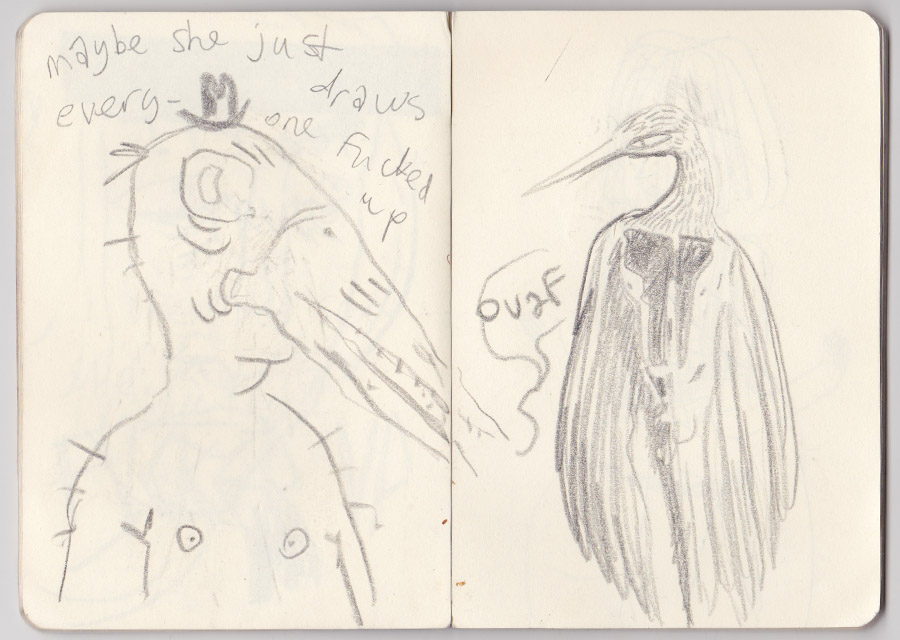 maybe she just
draws
every-
one
Fucked
up
ovaF